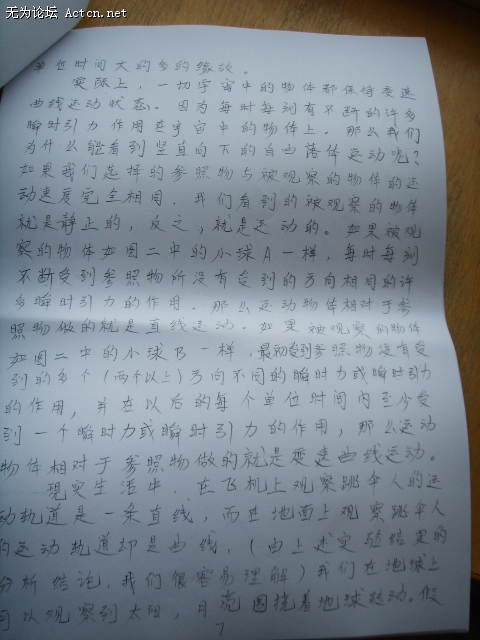 无为论坛 Actcn.net
单位时间大的多的缘故。
实际上，一切宇宙中的物体都保持变速
曲线运动状态。因为每时每刻有不断的许多
瞬时引力作用在宇宙中的物体上。那么我们
为什么能看到竖直向下的自由落体运动呢？
如果我们选择的参照物与被观察的物体的运
动速度完全相同，我们看到的被观察的物体
就是静止的，反之，就是运动的。如果被观
察的物体如图二中的小球A一样，每时每刻
不断受到参照物所没有受到的方向相同的许
多瞬时引力的作用。那么运动物体相对于参
照物做的就是直线运动。如果被观察的物体
如图二中的小球B一样，最初受到参照物没有受
到的多个（两个以上）方向不同的瞬时力或瞬时引力
的作用，并在以后的每个单位时间内至少受
到一个瞬时力或瞬时引力的作用，那么运动
物体相对于参照物做的就是变速曲线运动。
现实生活中，在飞机上观察跳伞人的运
动轨道是一条直线，而在地面上观察跳伞人
的运动轨道却是曲线，（由上述实验结果的
分析结论，我们很容易理解）我们在地球上
可以观察到太阳，月亮围绕着地球转动。假
7